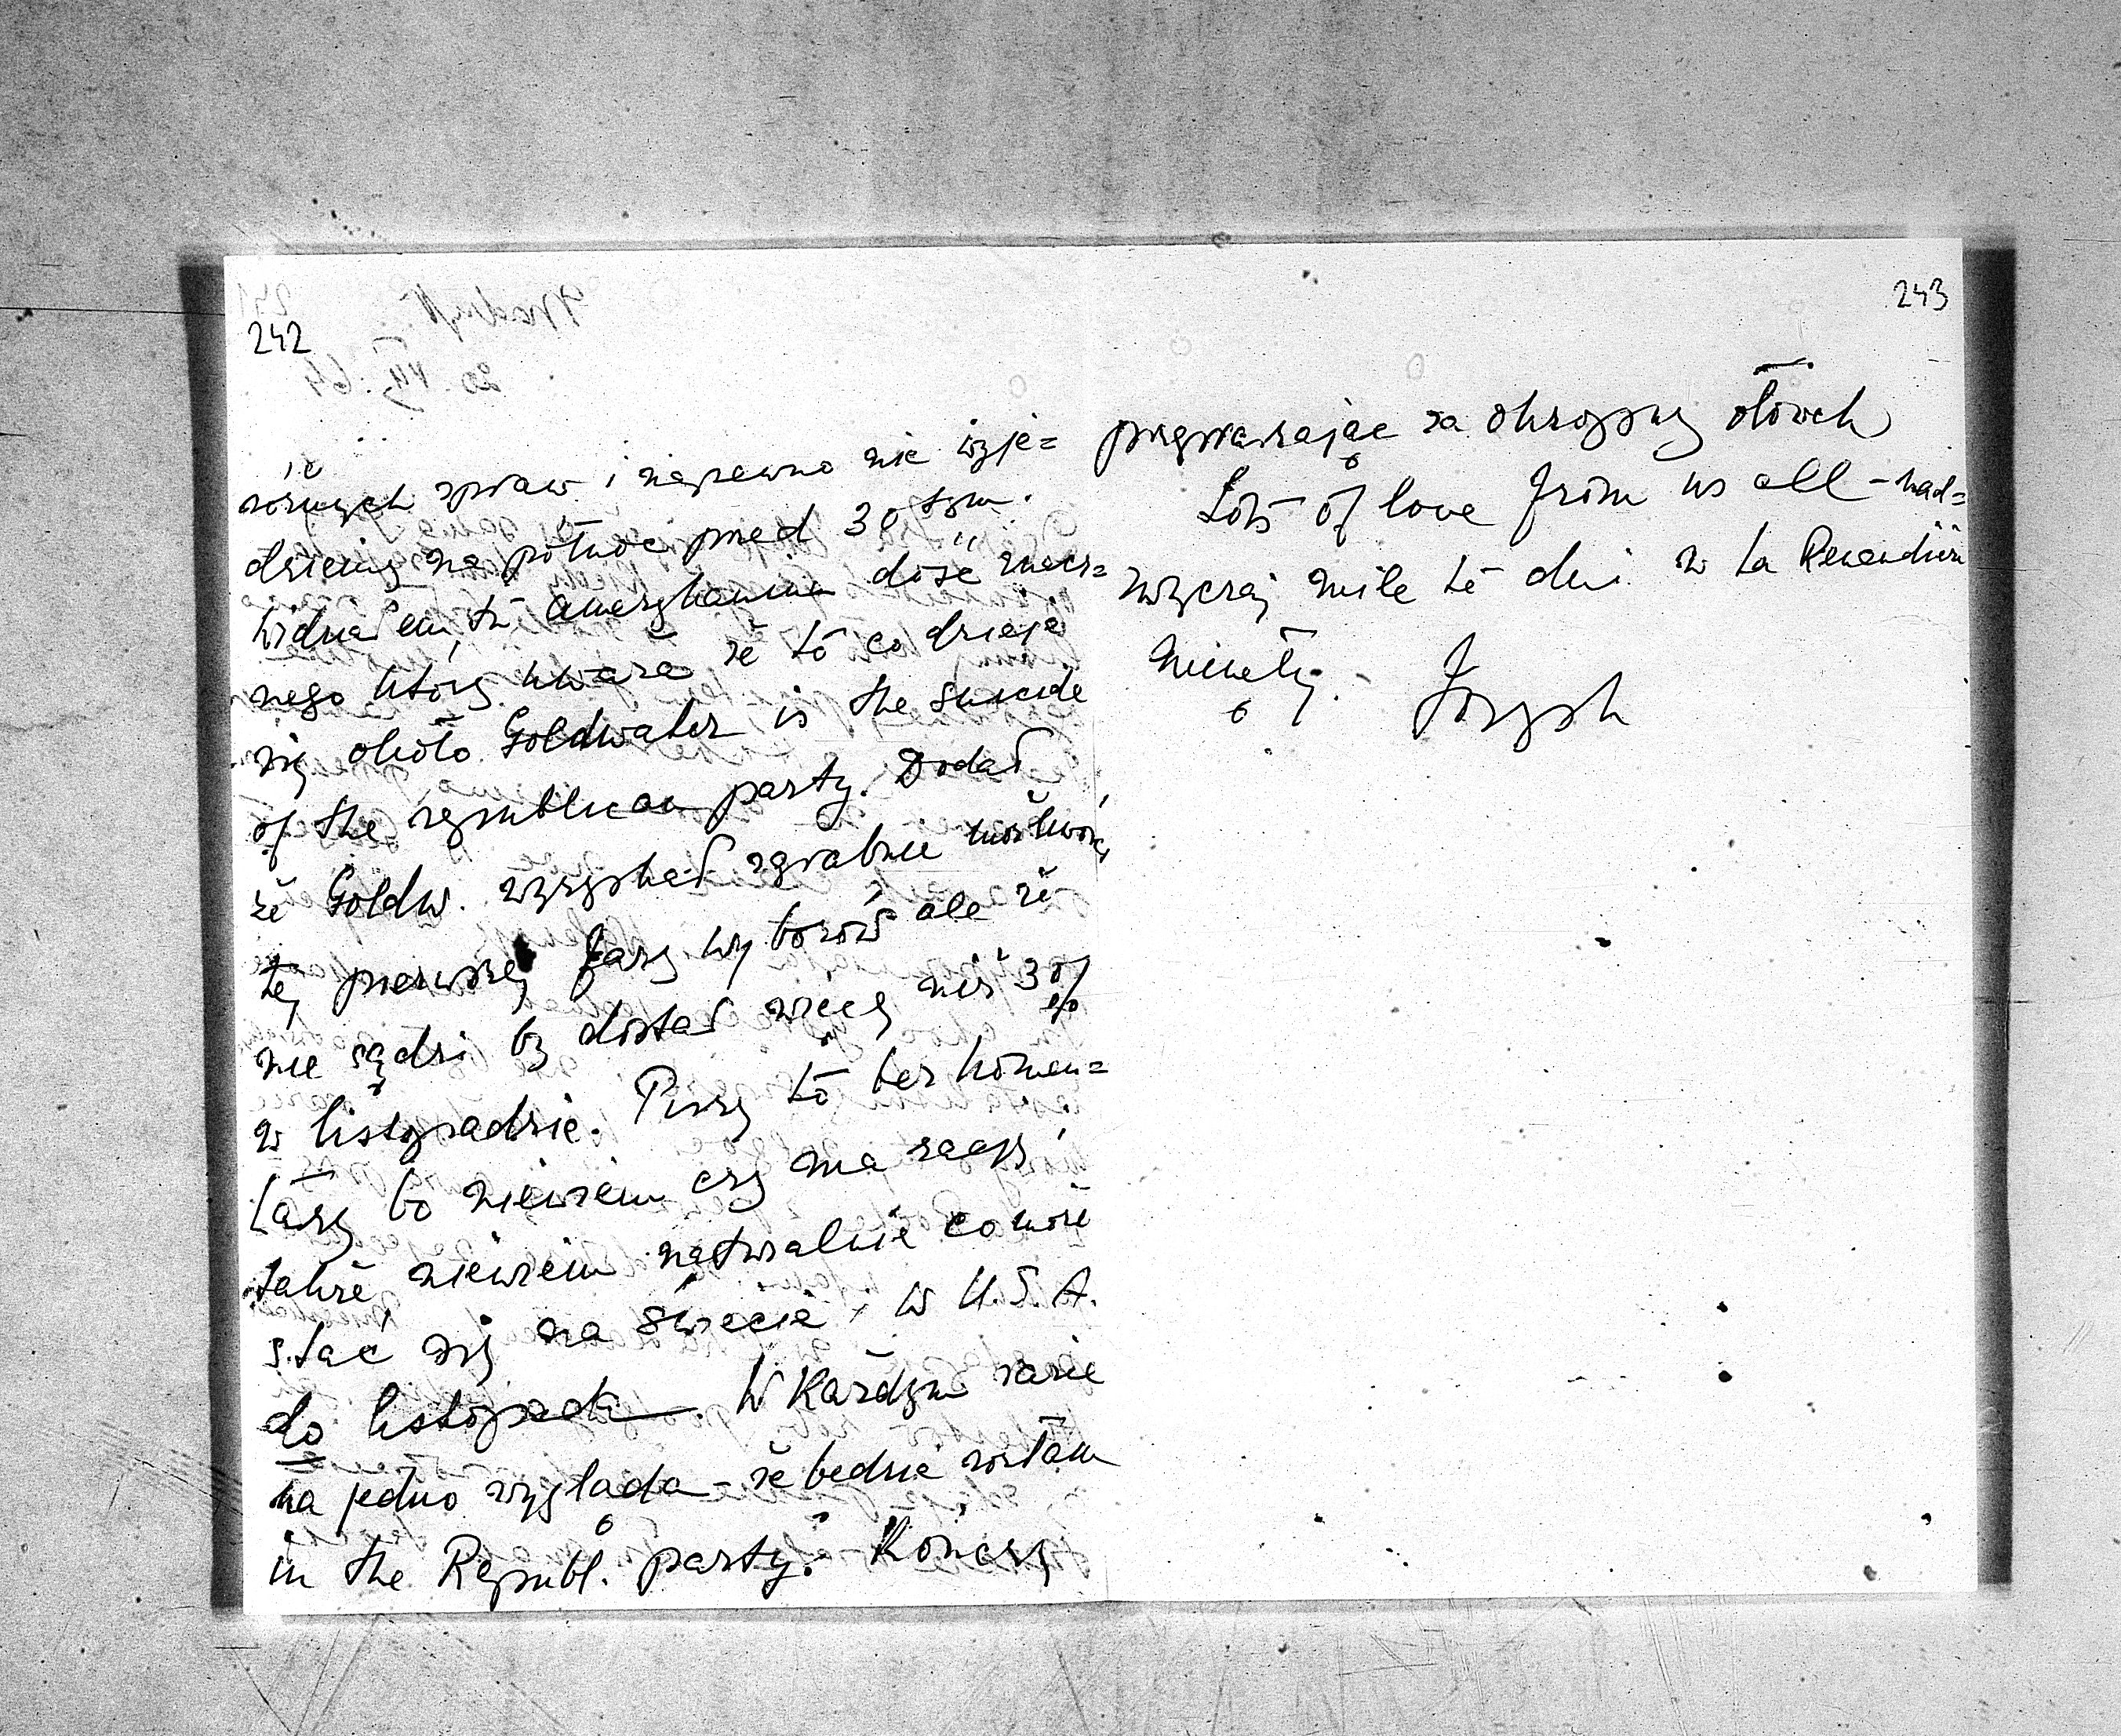 242
różnych spraw i napewno nie wyje=
dziemy na północ przed 30 tym.
Widziałem tu Amerykanina dość znacz=
nego który uważa że to co dzieje
się około Goldwater is the suicide
of the republican party. Dodał
że Goldw. wyzyskał zgrabnie możliwość
tej pierwszej fazy wyborów ale że
nie sądzi by dostał więcej niż 30%
w listopadzie. Piszę to bez komen=
tarzy bo niewiem czy ma rację
także, niewiem naturalnie co może
stać się na świecie i w U.S.A.
do listopada. W każdym razie
na jedno wygląda – że bedzie rozłam
in the Republ. party. Kończę
243
przepraszając za okropny ołówek
Lots of love from us all – nad=
zwyczaj miłe te dni w La
minęły. Józef